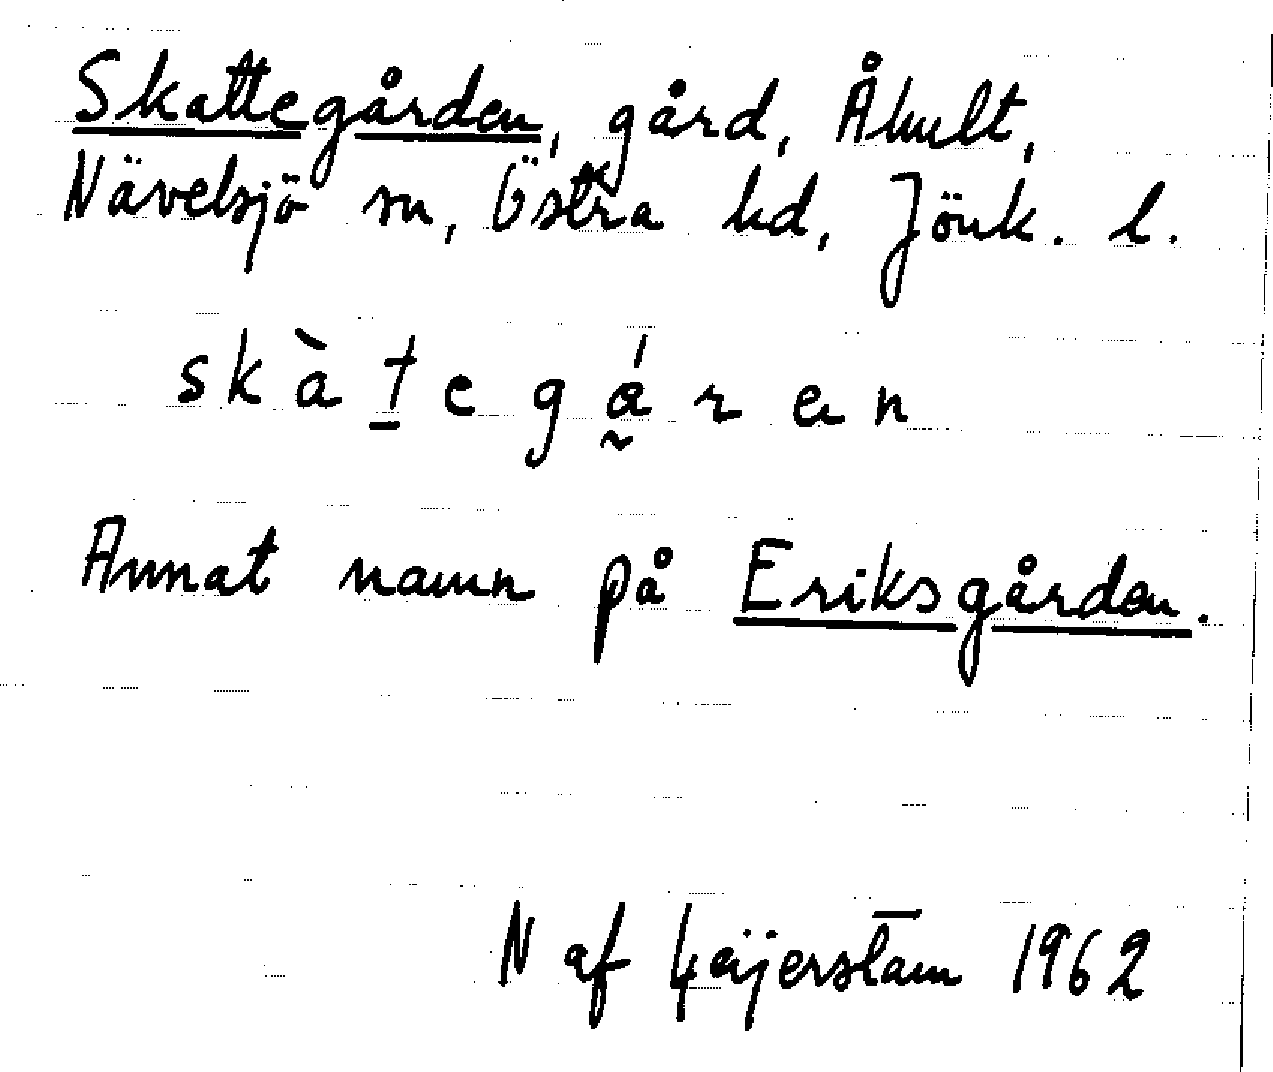 Skattegården, gård, Åhult,
Nävelsjö sn, Östra hd, Jönk. l.
skàt̲egá̰ren
Annat namn på Eriksgården.
N af Geijerstam 1962